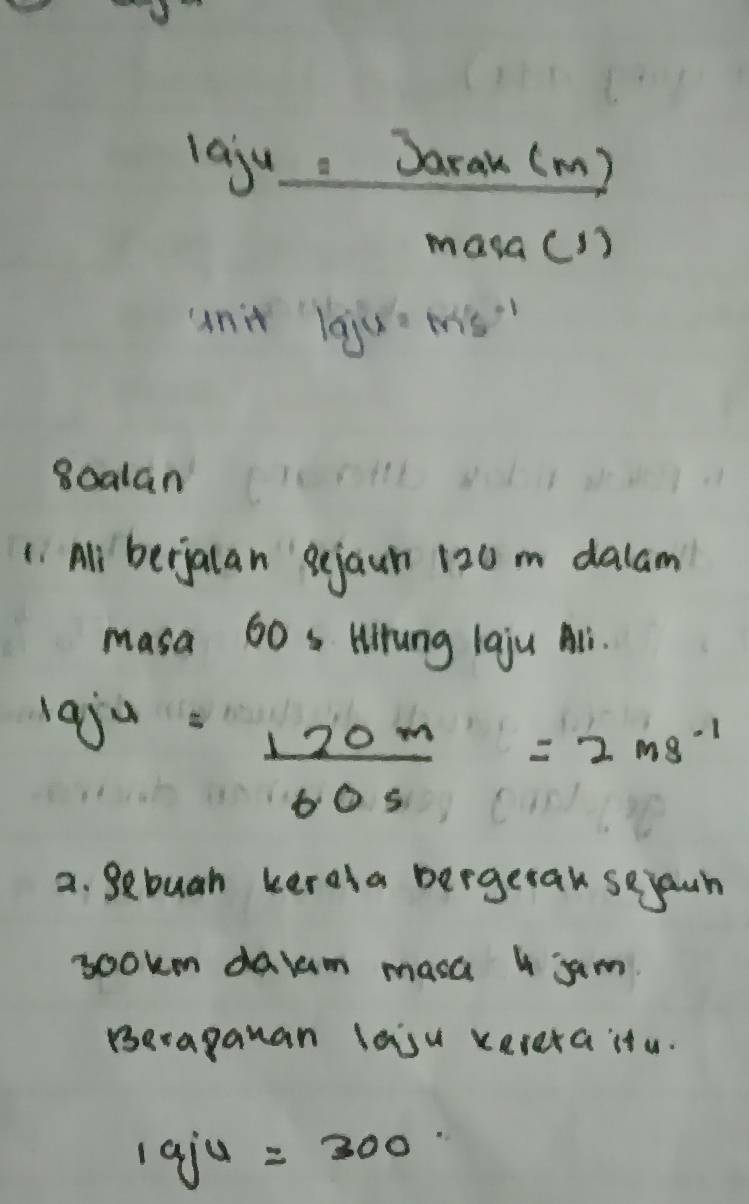 laju = Jarak (m)
masa (s)
unit laju = ms⁻¹
Soalan
1. Ali berjalan sejauh 120 m dalam
masa 60 s Hitung laju Ali.
laju = 120 m = 2 ms⁻¹
60 s
2. Sebuah kereta bergerak sejauh
300km dalam masa 4 jam.
Berapakah laju kereta itu.
laju = 300